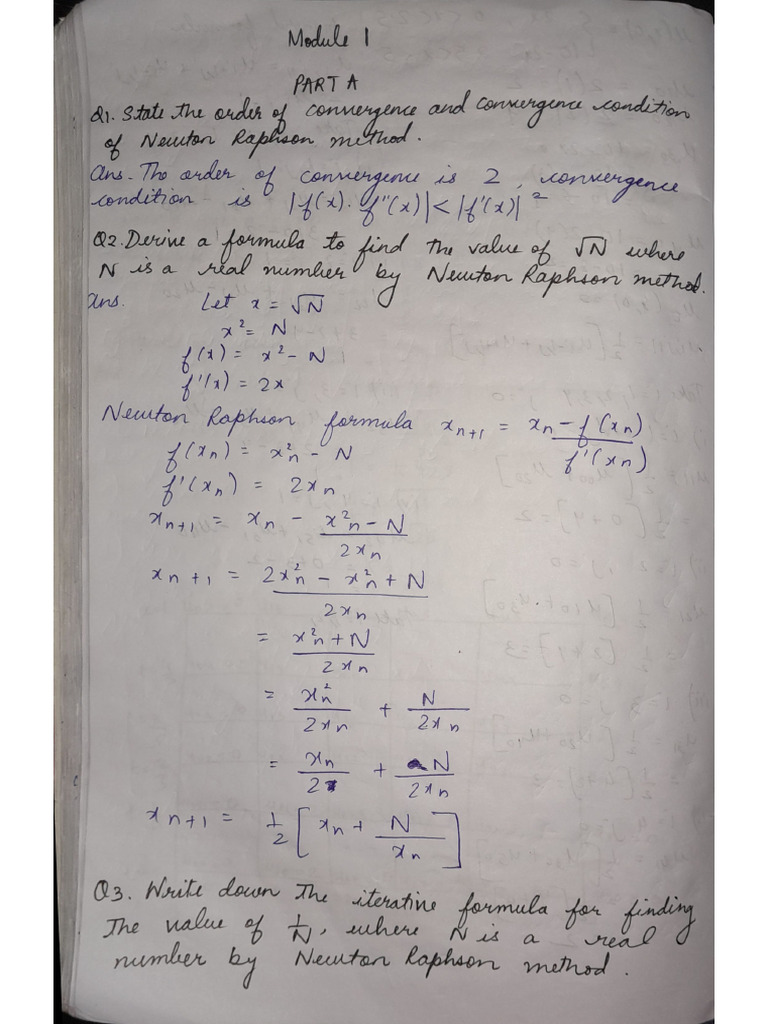 Module 1
PART A
Q1. State the order of convergence and convergence condition
of Newton Raphson method.
Ans. The order of convergence is 2, convergence
condition is |f(x). f''(x)| < |f'(x)|²
Q2. Derive a formula to find the value of √N where
N is a real number by Newton Raphson method.
Ans. Let x = √N
x² = N
f(x) = x² - N
f'(x) = 2x
Newton Raphson formula xₙ₊₁ = xₙ - f(xₙ) / f'(xₙ)
f(xₙ) = x²ₙ - N
f'(xₙ) = 2xₙ
xₙ₊₁ = xₙ - (x²ₙ - N) / 2xₙ
xₙ₊₁ = (2x²ₙ - x²ₙ + N) / 2xₙ
= (x²ₙ + N) / 2xₙ
= x²ₙ / 2xₙ + N / 2xₙ
= xₙ / 2 + N / 2xₙ
xₙ₊₁ = 1/2 [xₙ + N / xₙ]
Q3. Write down the iterative formula for finding
the value of 1/N, where N is a real
number by Newton Raphson method.